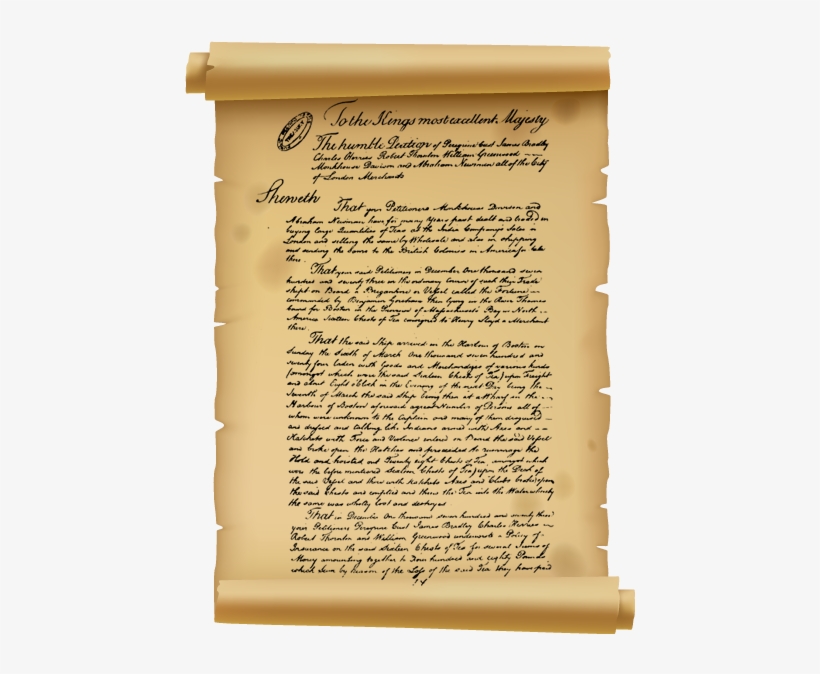 To the Kings most excellent Majesty
The humble Petition of Peregrine Cust James Bradley
Charles Herries Robert Thornton William Greenwood
Monkhouse Davison and Abraham Newman all of the City
of London Merchants
Sheweth
That your Petitioners Monkhouse Davison and
Abraham Newman have for many Years past dealt and traded in
buying large Quantities of Teas at the India Company's Sales in
London and selling the same by Wholesale and also in shipping
and sending the same to the British Colonies in America for Sale
there.
That your said Petitioners in December One thousand seven
hundred and seventy three in the ordinary course of such their Trade
shipt on Board a Brigantine or Vessel called the Fortune
commanded by Benjamin Gorham then lying in the River Thames
bound for Boston in the Province of Massachusets Bay in North
America Sixteen Chests of Tea consigned to Henry Lloyd a Merchant
there.
That the said Ship arrived in the Harbour of Boston on
Sunday the Sixth of March One thousand seven hundred and
seventy four laden with Goods and Merchandizes of various kinds
(amongst which were the said Sixteen Chests of Tea) upon Freight
and about Eight oClock in the Evening of the next Day being the
Seventh of March the said Ship being then at a Wharf in the
Harbour of Boston aforesaid a great Number of Persons all of
whom were unknown to the Captain and many of them disguised
and dressed and talking like Indians armed with Axes and
Hatchets with Force and Violence entered on Board the said Vessel
and broke open the Hatches and proceeded to rummage the
Hold and hoisted out Twenty eight Chests of Tea amongst which
were the before mentioned Sixteen Chests of Tea upon the Deck of
the said Vessel and there with Hatchets Axes and Clubs broke open
the said Chests and emptied and threw the Tea into the Water whereby
the same was wholly lost and destroyed
That in December One thousand seven hundred and seventy three
your Petitioners Peregrine Cust James Bradley Charles Herries
Robert Thornton and William Greenwood underwrote a Policy of
Insurance on the said Sixteen Chests of Tea for several Sums of
Money amounting together to Four hundred and eighty Pounds
which Sum by reason of the Loss of the said Tea they have paid